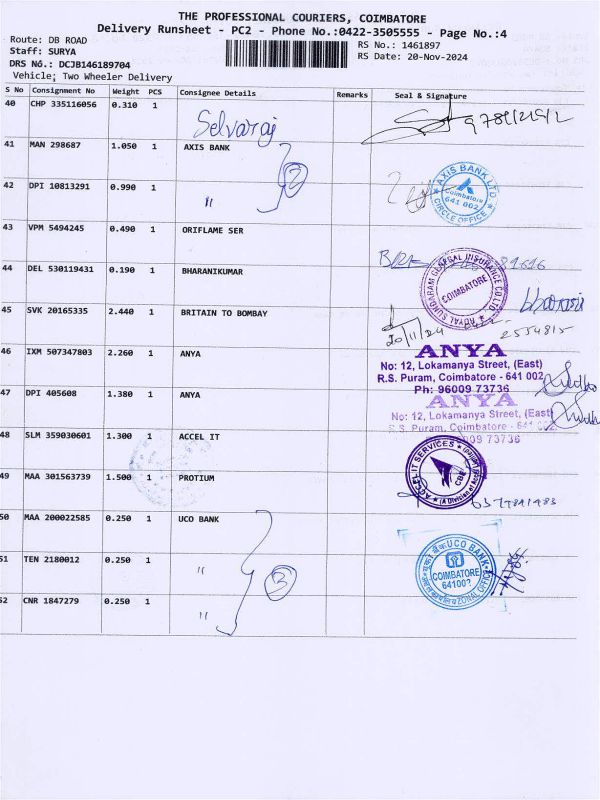 THE PROFESSIONAL COURIERS, COIMBATORE
Delivery Runsheet - PC2 - Phone No.:0422-3505555 - Page No.:4
Route: DB ROAD
RS No.: 1461897
Staff: SURYA
RS Date: 20-Nov-2024
DRS No.: DCJB146189704
Vehicle; Two Wheeler Delivery
S No Consignment No Weight PCS Consignee Details Remarks Seal & Signature
40 CHP 335116056 0.310 1 Selvaraj
41 MAN 298687 1.050 1 AXIS BANK
2
42 DPI 10813291 0.990 1 "
AXIS BANK LTD Coimbatore 641 002 CIRCLE OFFICE
43 VPM 5494245 0.490 1 ORIFLAME SER
44 DEL 530119431 0.190 1 BHARANIKUMAR
ROYAL SUNDARAM GENERAL INSURANCE CO LTD COIMBATORE
45 SVK 20165335 2.440 1 BRITAIN TO BOMBAY
20/11/24 2554815
46 IXM 507347803 2.260 1 ANYA
ANYA
No: 12, Lokamanya Street, (East)
R.S. Puram, Coimbatore - 641 002
Ph: 96009 73736
47 DPI 405608 1.380 1 ANYA
ANYA
No: 12, Lokamanya Street, (East)
R.S. Puram, Coimbatore - 641 002
009 73736
48 SLM 359030601 1.300 1 ACCEL IT
ACCEL IT SERVICES CBE
49 MAA 301563739 1.500 1 PROTIUM
50 MAA 200022585 0.250 1 UCO BANK
51 TEN 2180012 0.250 1 "
3
UCO BANK COIMBATORE ZONAL OFFICE
52 CNR 1847279 0.250 1 "